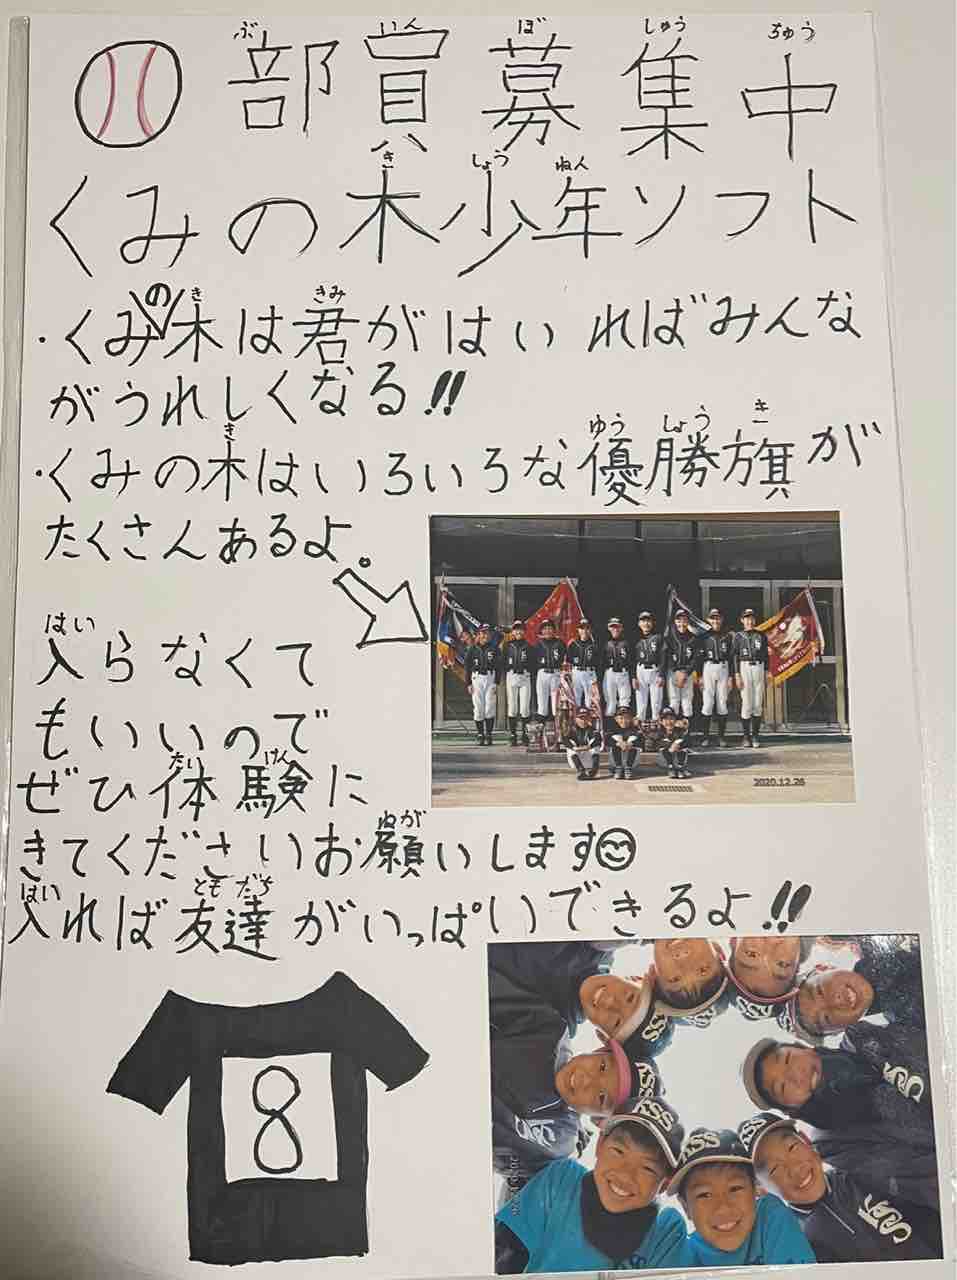 部員募集中
くみの木少年ソフト
・くみの木は君がはいればみんな
がうれしくなる!!
・くみの木はいろいろな優勝旗が
たくさんあるよ。
入らなくて
もいいので
ぜひ体験に
きてくださいお願いします
入れば友達がいっぱいできるよ!!
2020.12.26
8